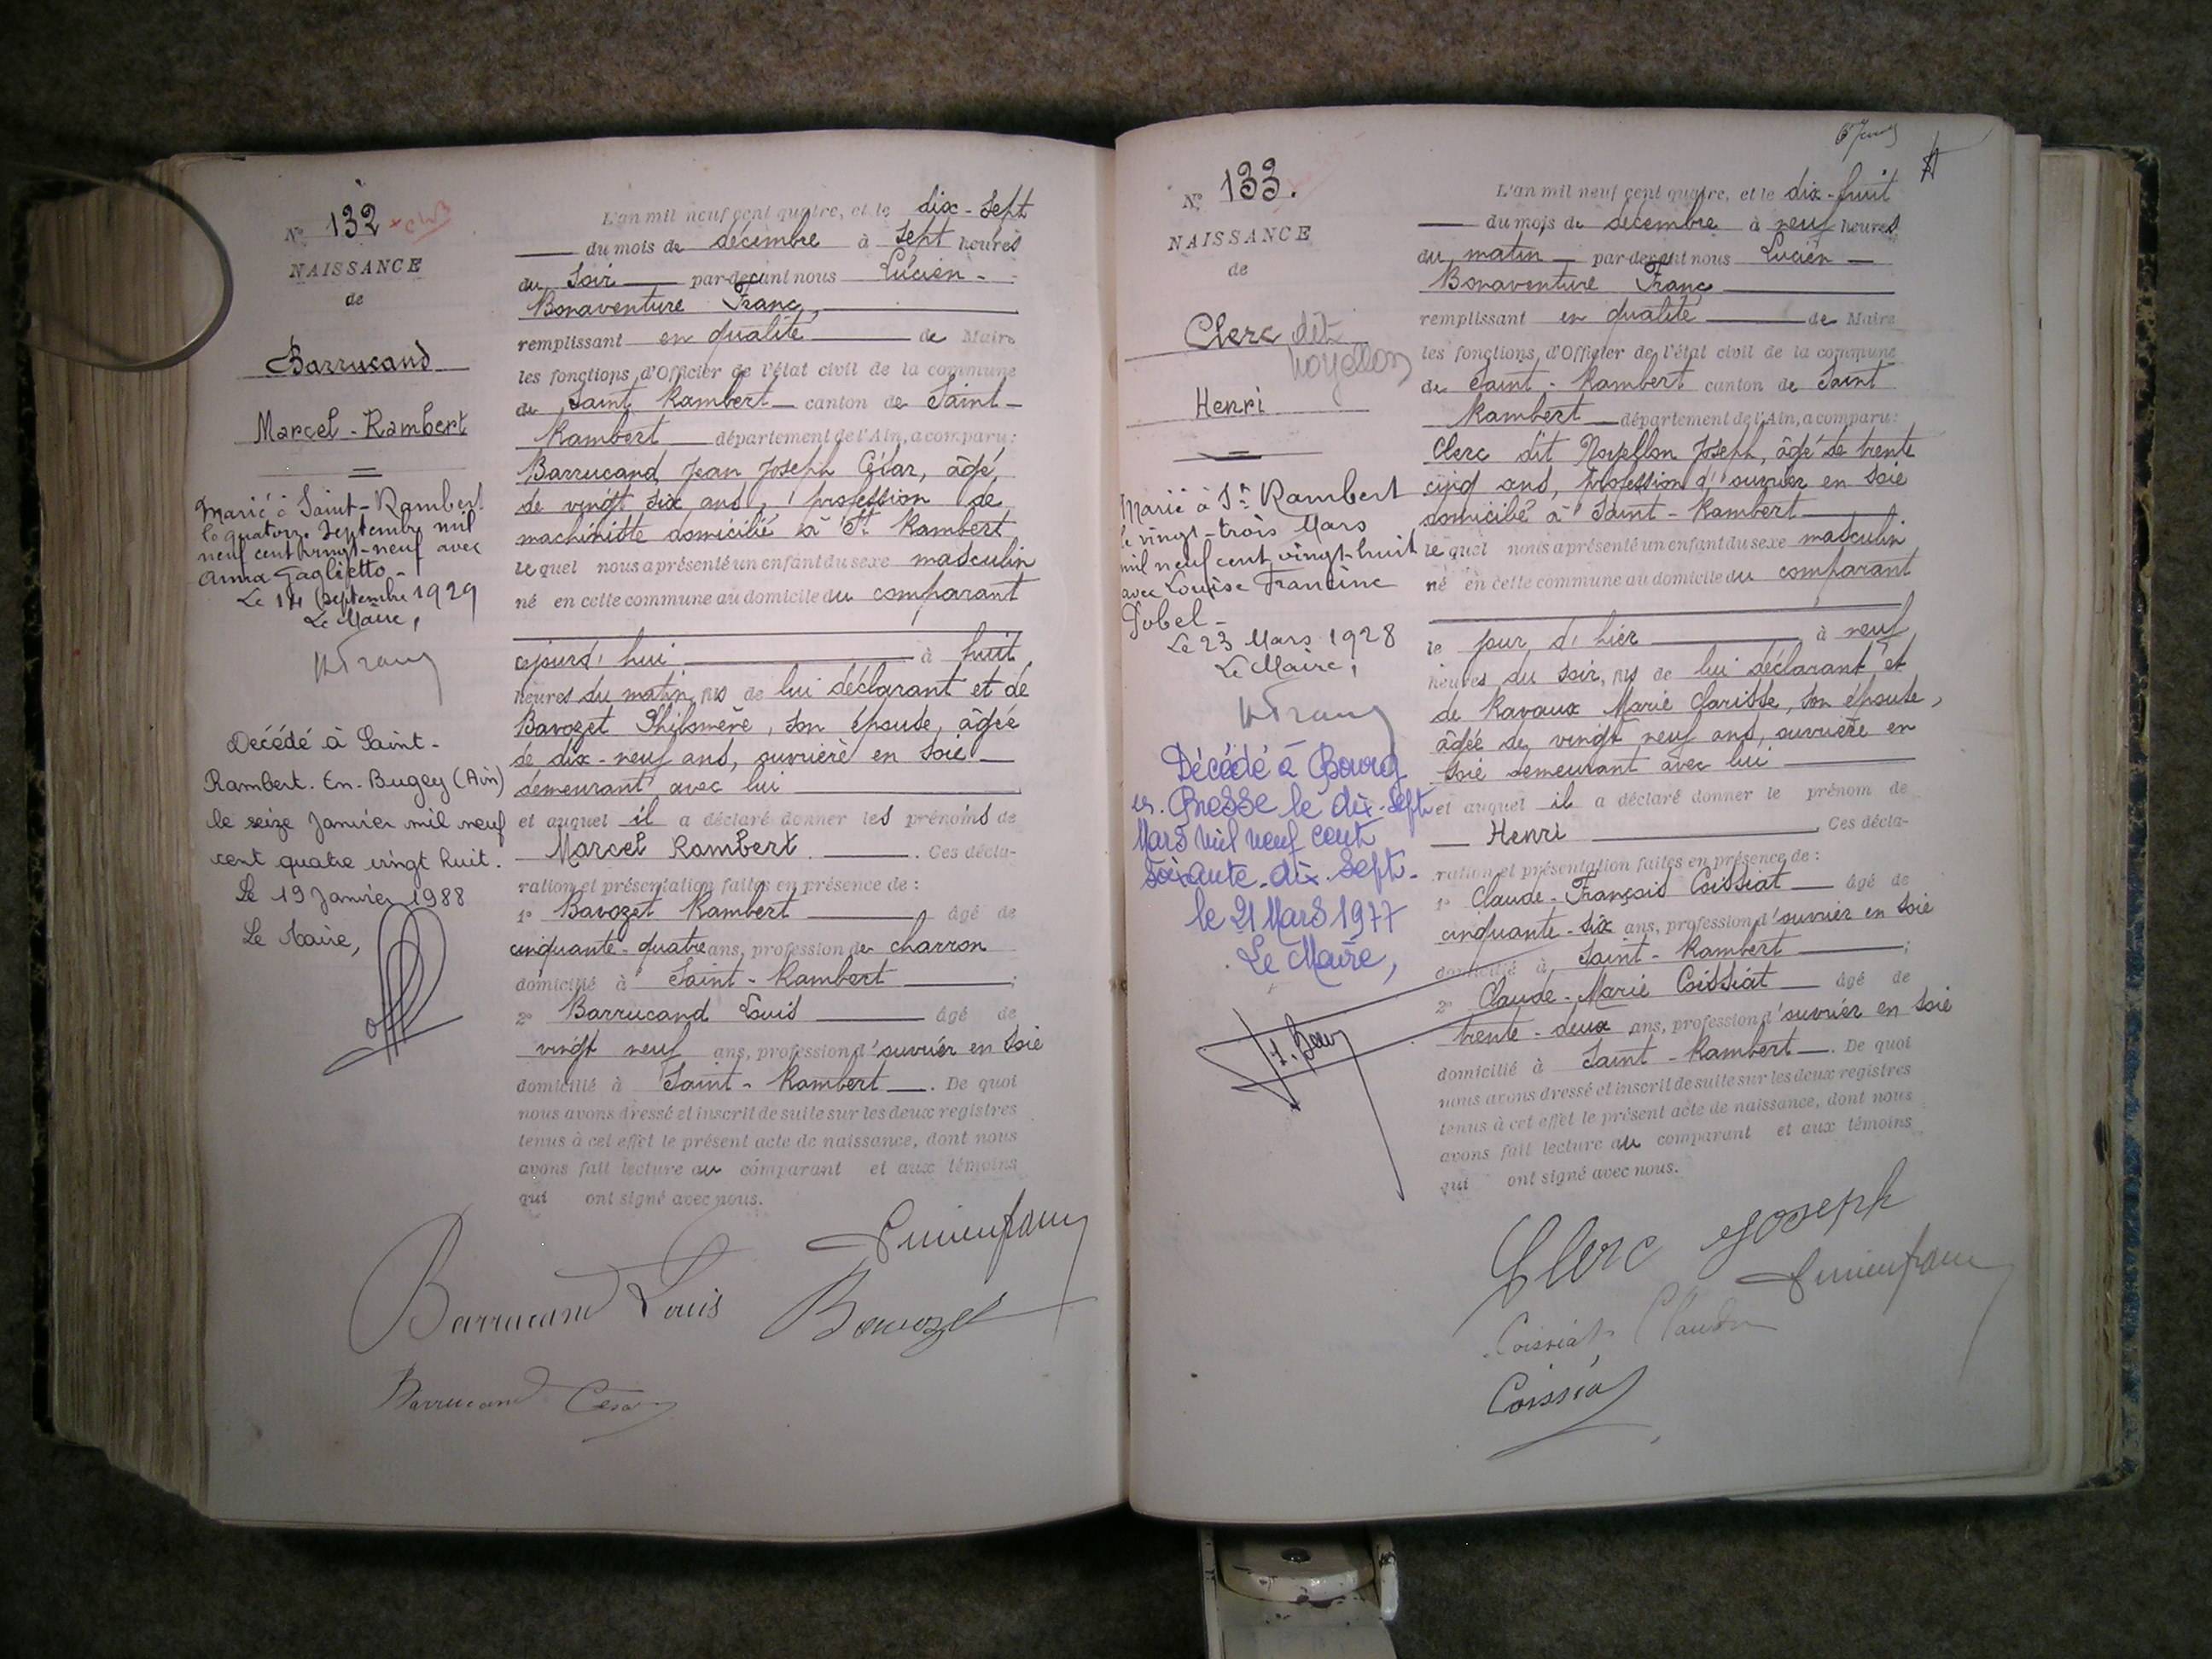 N° 132
NAISSANCE
de
Barrucand
Marcel-Rambert
Marié à Saint-Rambert
le quatorze Septembre mil
neuf cent vingt-neuf avec
Anna Gaglietto-
Le 14 Septembre 1929
Le Maire,
Décédé à Saint-
Rambert-En-Bugey (Ain)
le seize Janvier mil neuf
cent quatre vingt huit.
Le 19 Janvier 1988
Le Maire,
L'an mil neuf cent quatre, et le dix-sept
du mois de décembre à sept heures
du soir par-devant nous Lucien-
Bonaventure Franc,
remplissant en qualité de Maire
les fonctions d'Officier de l'état civil de la commune
de Saint Rambert canton de Saint-
Rambert département de l'Ain, a comparu:
Barrucand Jean Joseph César, âgé
de vingt six ans, profession de
machiniste domicilié à St Rambert
lequel nous a présenté un enfant du sexe masculin
né en cette commune au domicile du comparant
ajourd'hui à huit
heures du matin, fils de lui déclarant et de
Bavozet Philomène, son épouse, âgée
de dix-neuf ans, ouvrière en soie
demeurant avec lui
et auquel il a déclaré donner les prénoms de
Marcel Rambert. Ces décla-
ration et présentation faites en présence de :
1° Bavozet Rambert âgé de
cinquante-quatre ans, profession de charron
domicilié à Saint-Rambert ;
2° Barrucand Louis âgé de
vingt neuf ans, profession d'ouvrier en soie
domicilié à Saint-Rambert. De quoi
nous avons dressé et inscrit de suite sur les deux registres
tenus à cet effet le présent acte de naissance, dont nous
avons fait lecture au comparant et aux témoins
qui ont signé avec nous.
Lucien franc
Barrucand Louis Bavozet
Barrucand César
N° 133.
NAISSANCE
de
Clerc dit
Noyellon
Henri
Marié à St Rambert
le vingt-trois Mars
mil neuf cent vingt-huit
avec Louise Francine
Le 23 Mars 1928
Le Maire,
Décédé à Bourg
en Bresse le dix-sept
Mars mil neuf cent
soixante-dix-sept-
le 21 Mars 1977
Le Maire,
L'an mil neuf cent quatre, et le dix-huit
du mois de décembre à neuf heures
du matin par-devant nous Lucien
Bonaventure Franc
remplissant en qualité de Maire
les fonctions d'Officier de l'état civil de la commune
de Saint-Rambert canton de Saint
Rambert département de l'Ain, a comparu:
Clerc dit Noyellon Joseph, âgé de trente
cinq ans, profession d'ouvrier en soie
domicilié à Saint-Rambert
lequel nous a présenté un enfant du sexe masculin
né en cette commune au domicile du comparant
le jour d'hier à neuf
heures du soir, fils de lui déclarant et
de Ravaux Marie Clarisse, son épouse,
âgée de vingt neuf ans, ouvrière en
soie demeurant avec lui
et auquel il a déclaré donner le prénom de
Henri. Ces décla-
ration et présentation faites en présence de :
1° Claude-François Coissiat âgé de
cinquante-six ans, profession d'ouvrier en soie
domicilié à Saint-Rambert ;
2° Claude-Marie Coissiat âgé de
trente-deux ans, profession d'ouvrier en soie
domicilié à Saint-Rambert. De quoi
nous avons dressé et inscrit de suite sur les deux registres
tenus à cet effet le présent acte de naissance, dont nous
avons fait lecture au comparant et aux témoins
qui ont signé avec nous.
Clerc Joseph
Lucien franc
Coissiat Claude
Coissiat